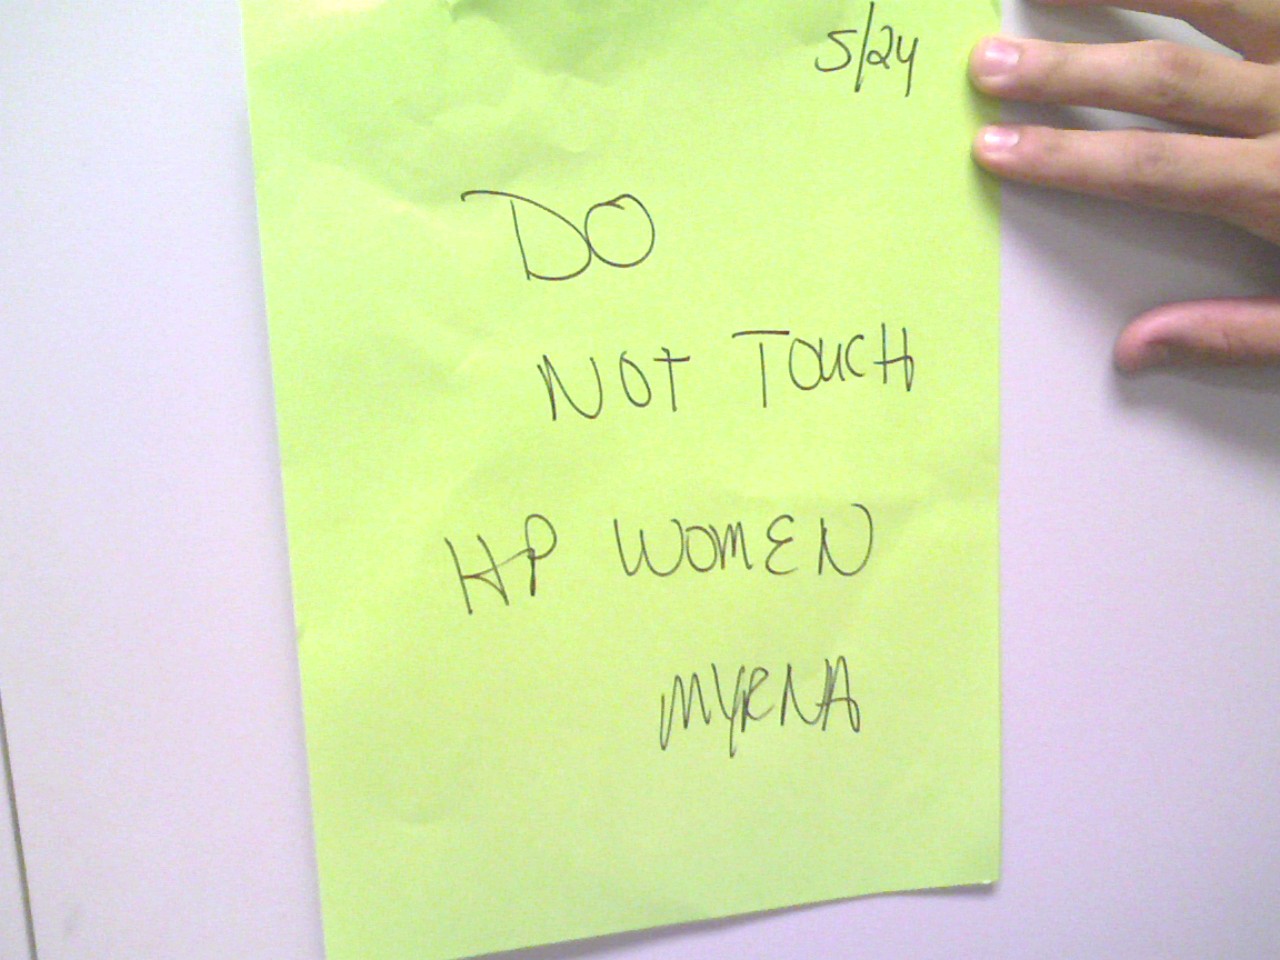 5/24
DO
NOT TOUCH
HP WOMEN
MYRNA